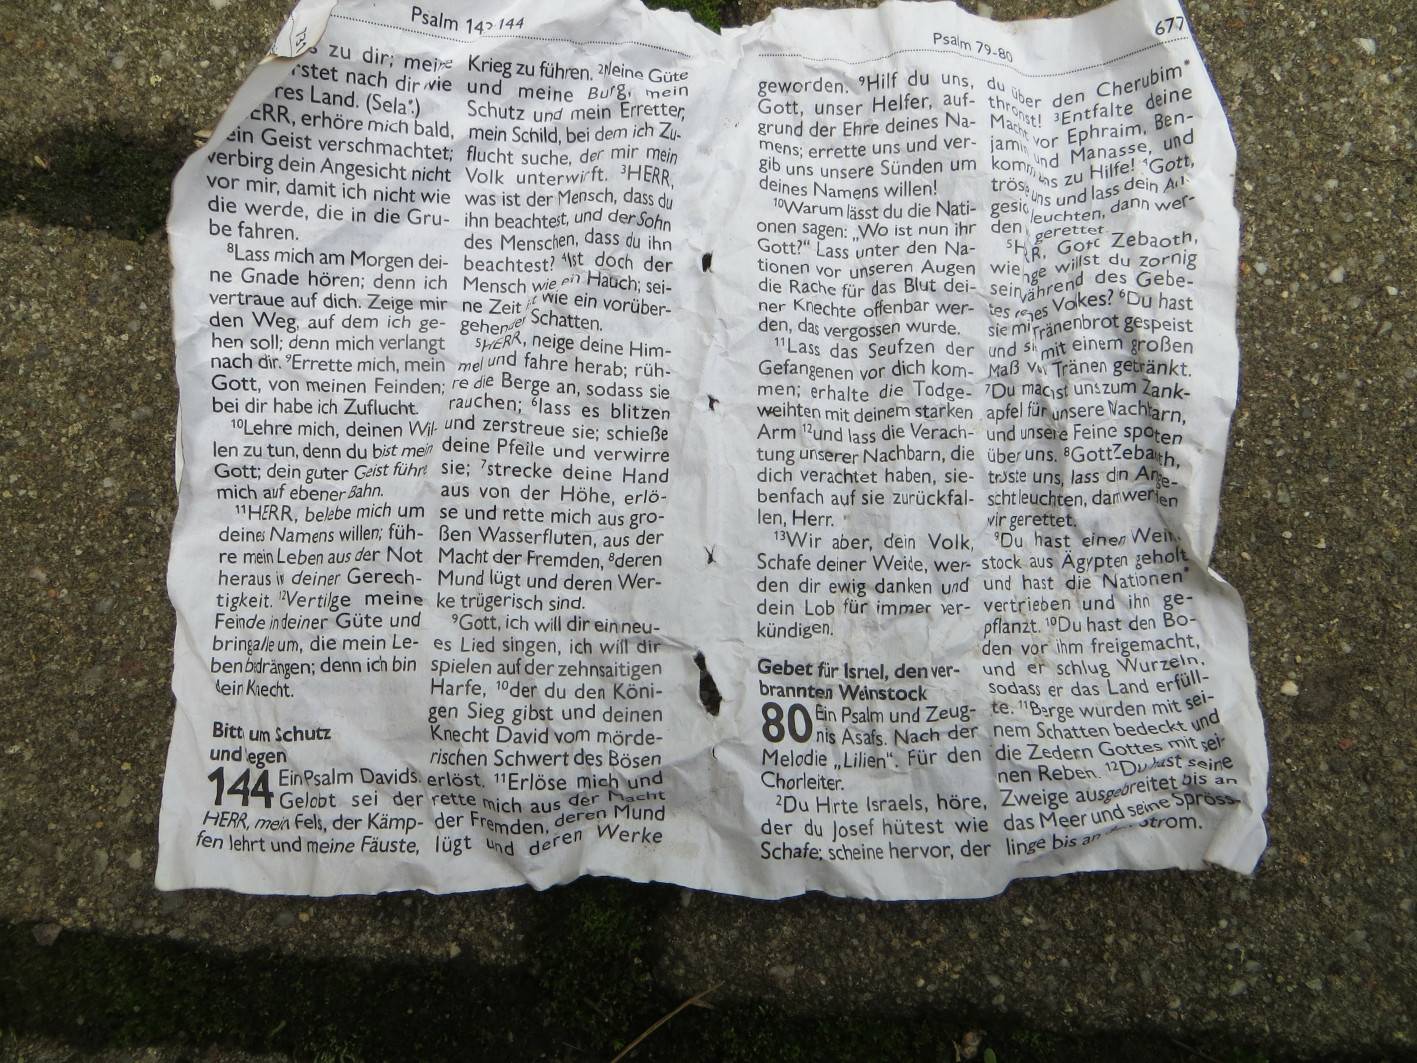 Psalm 143-144
zu dir; meine
nach dir wie
res Land. (Sela*.)
ERR, erhöre mich bald,
ein Geist verschmachtet;
verbirg dein Angesicht nicht
vor mir, damit ich nicht wie
die werde, die in die Gru-
be fahren.
⁸Lass mich am Morgen dei-
ne Gnade hören; denn ich
vertraue auf dich. Zeige mir
den Weg, auf dem ich ge-
hen soll; denn mich verlangt
nach dir. ⁹Errette mich, mein
Gott, von meinen Feinden;
bei dir habe ich Zuflucht.
¹⁰Lehre mich, deinen Wil-
len zu tun, denn du bist mein
Gott; dein guter Geist führe
mich auf ebener Bahn.
¹¹HERR, belebe mich um
deines Namens willen; füh-
re mein Leben aus der Not
heraus in deiner Gerech-
tigkeit. ¹²Vertilge meine
Feinde in deiner Güte und
bring alle um, die mein Le-
ben bedrängen; denn ich bin
dein Knecht.
Bitte um Schutz
und Segen
144 Ein Psalm Davids.
Gelobt sei der
HERR, mein Fels, der Kämp-
fen lehrt und meine Fäuste,
Krieg zu führen. ²Meine Güte
und meine Burg, mein
Schutz und mein Erretter,
mein Schild, bei dem ich Zu-
flucht suche, der mir mein
Volk unterwirft. ³HERR,
was ist der Mensch, dass du
ihn beachtest, und der Sohn
des Menschen, dass du ihn
beachtest? ⁴Ist doch der
Mensch wie ein Hauch; sei-
ne Zeit ist wie ein vorüber-
gehender Schatten.
⁵HERR, neige deine Him-
mel und fahre herab; rüh-
re die Berge an, sodass sie
rauchen; ⁶lass es blitzen
und zerstreue sie; schieße
deine Pfeile und verwirre
sie; ⁷strecke deine Hand
aus von der Höhe, erlö-
se und rette mich aus gro-
ßen Wasserfluten, aus der
Macht der Fremden, ⁸deren
Mund lügt und deren Wer-
ke trügerisch sind.
⁹Gott, ich will dir ein neu-
es Lied singen, ich will dir
spielen auf der zehnsaitigen
Harfe, ¹⁰der du den Köni-
gen Sieg gibst und deinen
Knecht David vom mörde-
rischen Schwert des Bösen
erlöst. ¹¹Erlöse mich und
rette mich aus der Macht
der Fremden, deren Mund
lügt und deren Werke
Psalm 79-80
677
geworden. ⁹Hilf du uns,
Gott, unser Helfer, auf-
grund der Ehre deines Na-
mens; errette uns und ver-
gib uns unsere Sünden um
deines Namens willen!
¹⁰Warum lässt du die Nati-
onen sagen: „Wo ist nun ihr
Gott?“ Lass unter den Na-
tionen vor unseren Augen
die Rache für das Blut dei-
ner Knechte offenbar wer-
den, das vergossen wurde.
¹¹Lass das Seufzen der
Gefangenen vor dich kom-
men; erhalte die Todge-
weihten mit deinem starken
Arm ¹²und lass die Verach-
tung unserer Nachbarn, die
dich verachtet haben, sie-
benfach auf sie zurückfal-
len, Herr.
¹³Wir aber, dein Volk,
Schafe deiner Weide, wer-
den dir ewig danken und
dein Lob für immer ver-
kündigen.
Gebet für Israel, den ver-
brannten Weinstock
80 Ein Psalm und Zeug-
nis Asafs. Nach der
Melodie „Lilien“. Für den
Chorleiter.
²Du Hirte Israels, höre,
der du Josef hütest wie
Schafe; scheine hervor, der
du über den Cherubim*
thronst! ³Entfalte deine
Macht vor Ephraim, Ben-
jamin und Manasse, und
komm uns zu Hilfe! ⁴Gott,
tröste uns und lass dein An-
gesicht leuchten, dann wer-
den gerettet.
⁵HERR, Gott Zebaoth,
wie lange willst du zornig
sein während des Gebe-
tes deines Volkes? ⁶Du hast
sie mit Tränenbrot gespeist
und sie mit einem großen
Maß von Tränen getränkt.
⁷Du machst uns zum Zank-
apfel für unsere Nachbarn,
und unsere Feinde spotten
über uns. ⁸Gott Zebaoth,
tröste uns, lass dein Ange-
sicht leuchten, dann werden
wir gerettet.
⁹Du hast einen Wein-
stock aus Ägypten geholt
und hast die Nationen*
vertrieben und ihn ge-
pflanzt. ¹⁰Du hast den Bo-
den vor ihm freigemacht,
und er schlug Wurzeln,
sodass er das Land erfüll-
te. ¹¹Berge wurden mit sei-
nem Schatten bedeckt und
die Zedern Gottes mit sei-
nen Reben. ¹²Du hast seine
Zweige ausgebreitet bis an
das Meer und seine Spröss-
linge bis an den Strom.